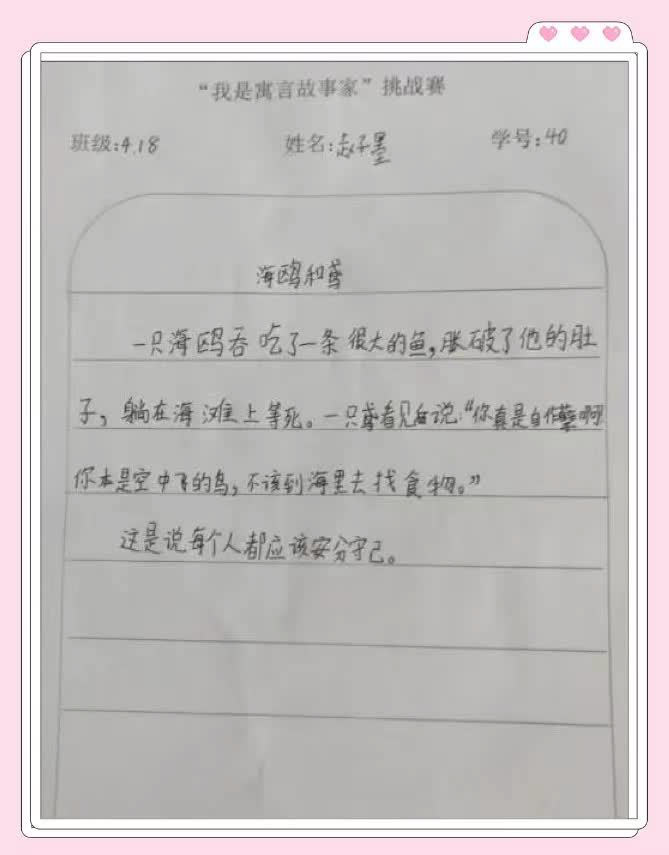 “我是寓言故事家”挑战赛
班级:4.18 姓名:赵子墨 学号:40
海鸥和鸢
一只海鸥吞吃了一条很大的鱼,胀破了他的肚
子,躺在海滩上等死。一只鸢看见 说:“你真是自作孽啊
你本是空中飞的鸟,不该到海里去找食物。”
这是说每个人都应该安分守己。